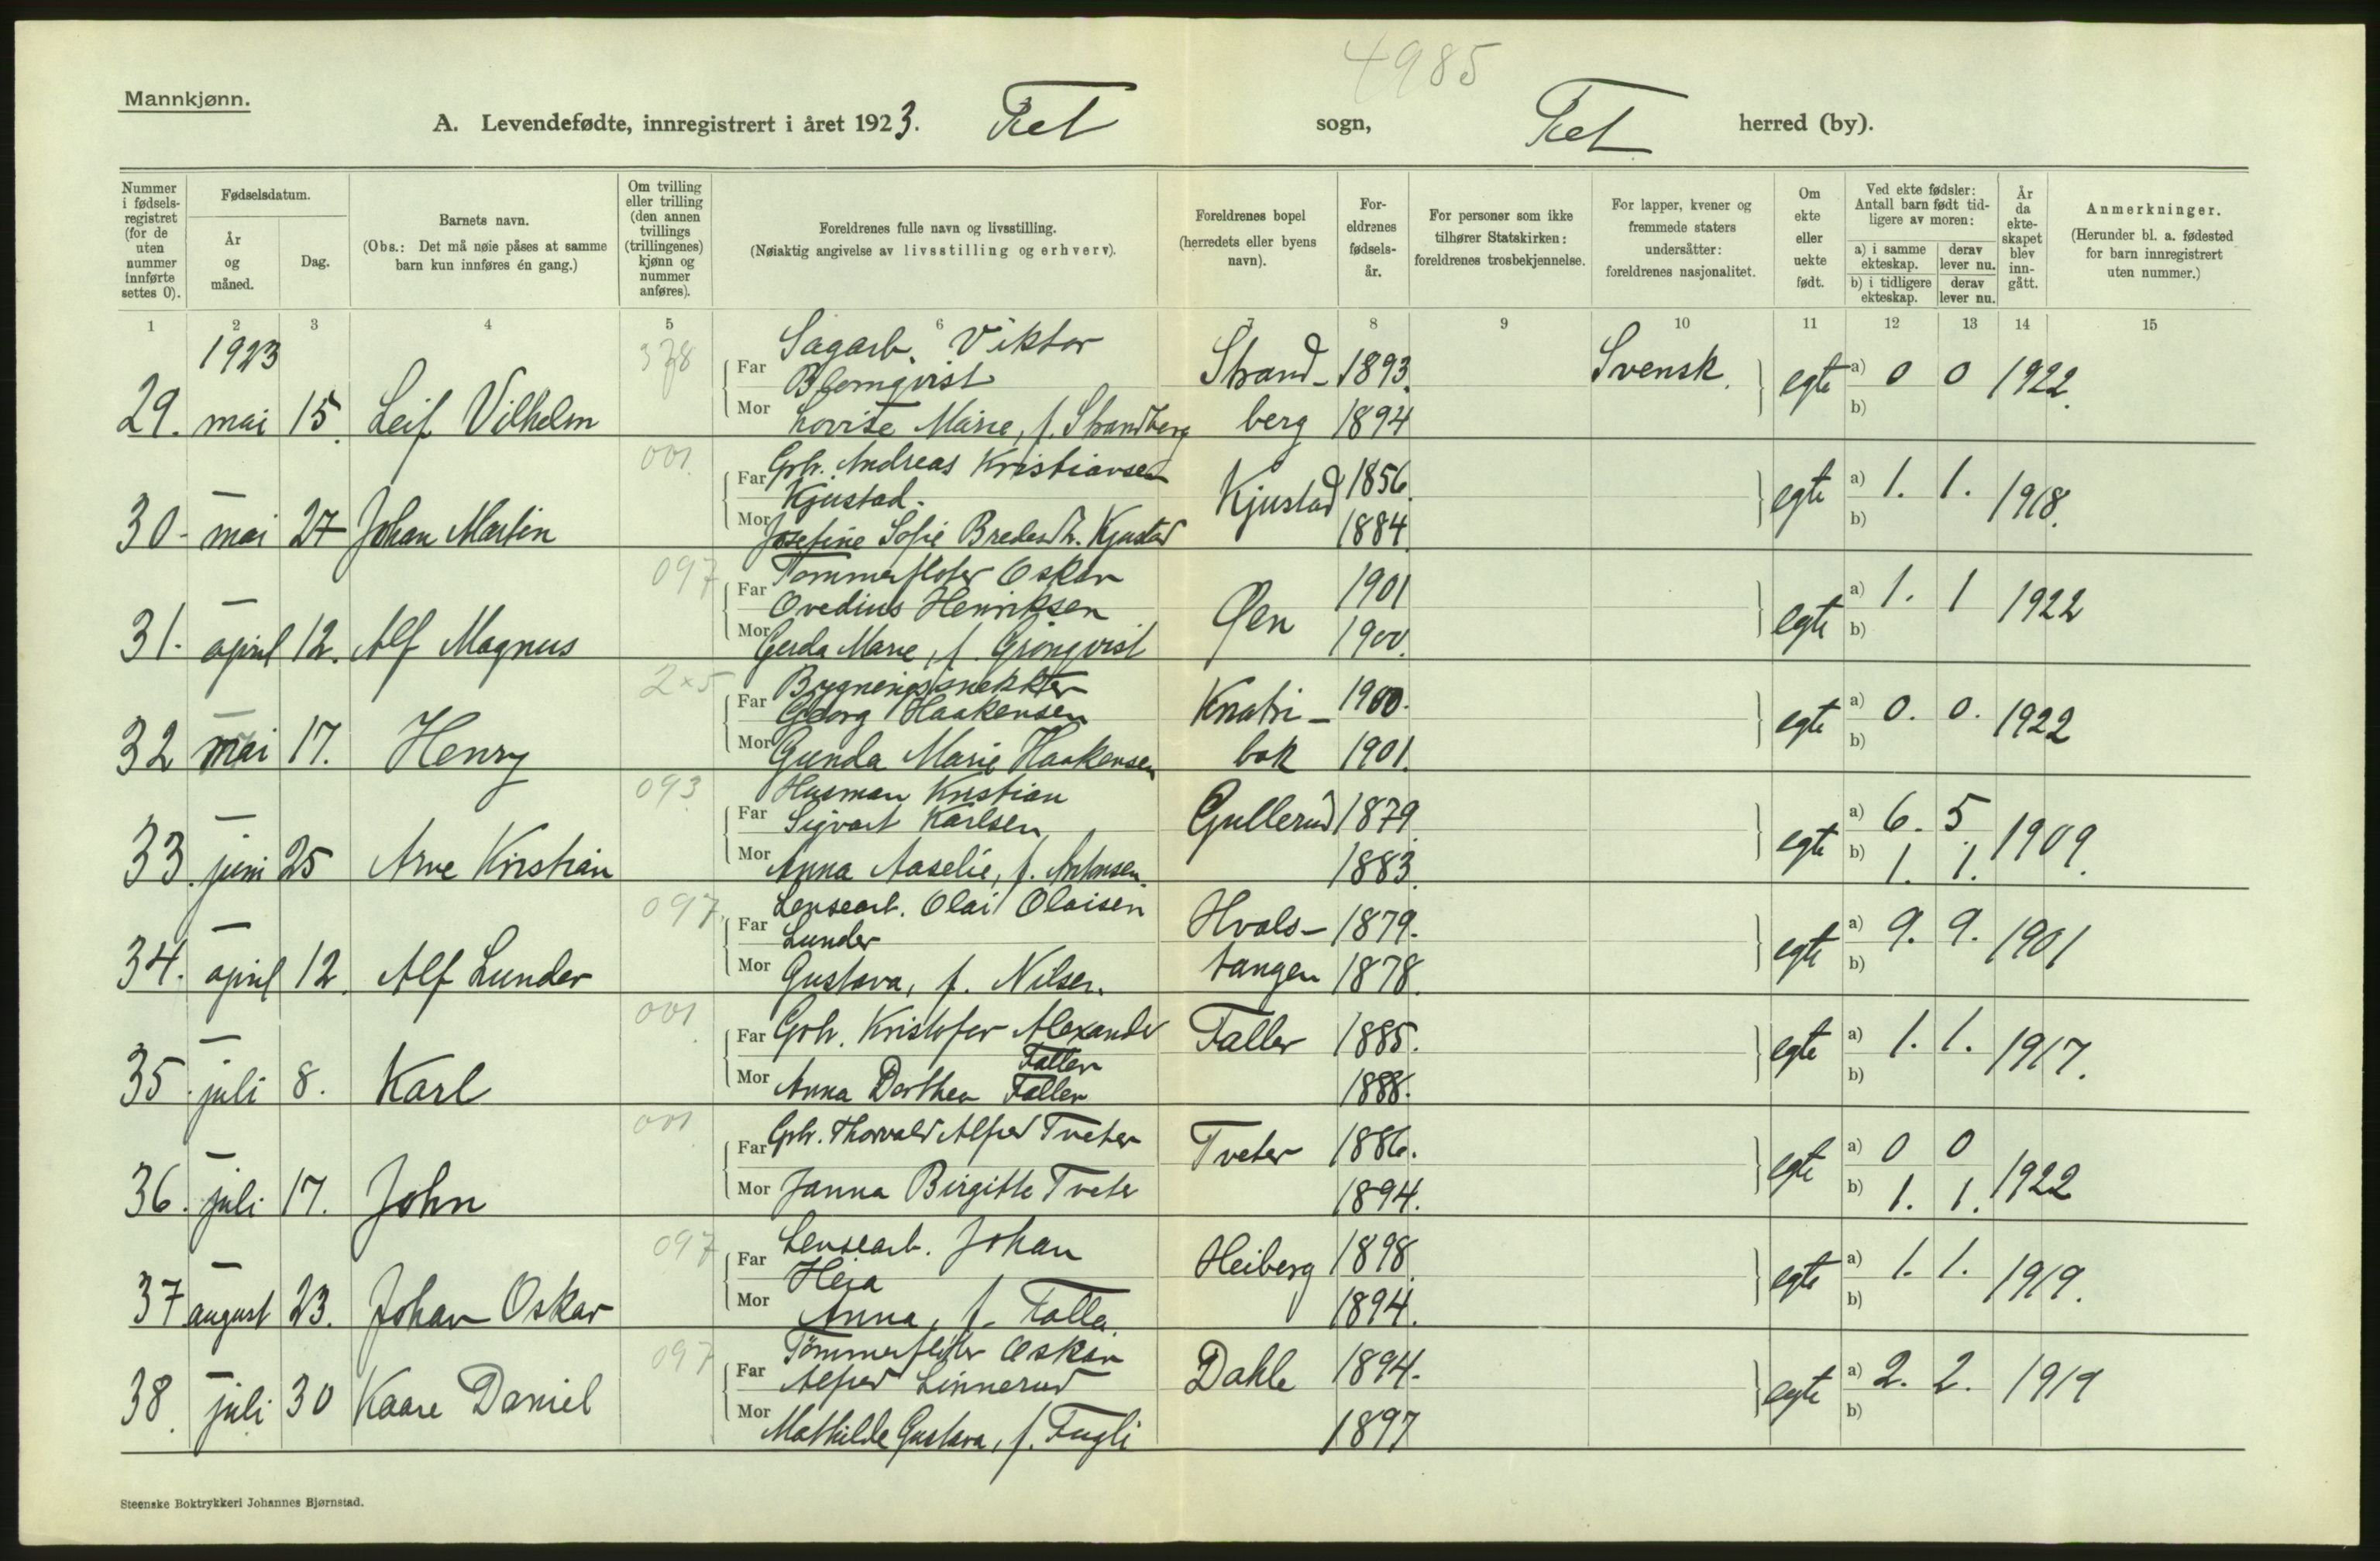 4985
Mannkjønn.
A. Levendefødte, innregistrert i året 1923. Fet sogn, Fet herred (by).
Nummer i fødsels-registret (for de uten nummer innførte settes 0).
Fødselsdatum.
År og måned.
Dag.
Barnets navn.
(Obs.: Det må nøie påses at samme barn kun innføres én gang.)
Om tvilling eller trilling (den annen tvillings (trillingenes) kjønn og nummer anføres).
Foreldrenes fulle navn og livsstilling.
(Nøiaktig angivelse av livsstilling og erhverv).
Foreldrenes bopel (herredets eller byens navn).
For-eldrenes fødsels-år.
For personer som ikke tilhører Statskirken: foreldrenes trosbekjennelse.
For lapper, kvener og fremmede staters undersåtter: foreldrenes nasjonalitet.
Om ekte eller uekte født.
Ved ekte fødsler: Antall barn født tid-ligere av moren:
a) i samme ekteskap. derav lever nu.
b) i tidligere ekteskap. derav lever nu.
År da ekte-skapet blev inn-gått.
Anmerkninger.
(Herunder bl. a. fødested for barn innregistrert uten nummer.)
1 2 3 4 5 6 7 8 9 10 11 12 13 14 15
1923
378
29. mai 15. Leif Vilhelm
Far Sagarb. Viktor Blomqvist
Mor Lovise Marie, f. Strandberg
Strand-berg 1893. 1894 Svensk. egte a) 0 0 b) 1922.
001.
30 - mai 27 Johan Martin
Far Grbr. Andreas Kristiansen Kjustad.
Mor Josefine Sofie Kjustad
Kjustad 1856. 1884. egte a) 1. 1. b) 1918.
097
31. - april 12. Alf Magnus
Far Tømmerfløter Oskar Ovedius Henriksen
Mor Gerda Marie, f. Grönqvist
Øen 1901 1900. egte a) 1. 1 b) 1922
2x5
32 - mai 17. Henry
Far Bygningssnekker Georg Haakensen
Mor Gunda Marie Haakensen
Knatri-bak 1900. 1901. egte a) 0. 0. b) 1922
093
33. - juni 25 Arve Kristian
Far Husman Kristian Sigvart Karlsen,
Mor Anna Aaselie, f. Antonsen.
Gullerud 1879. 1883. egte a) 6. 5. b) 1. 1. 1909.
097.
34. - april 12. Alf Lunder
Far Lensearb. Olai Olaisen Lunder
Mor Gustava, f. Nilsen.
Hvals-tangen 1879. 1878. egte a) 9. 9. b) 1901
001
35. - juli 8. Karl
Far Grbr. Kristofer Alexander Faller
Mor Anna Dorthea Faller
Faller 1885. 1888. egte a) 1. 1. b) 1917.
001
36. - juli 17. John
Far Grbr. Thorvald Alfred Tveter
Mor Janna Birgitte Tveter
Tveter 1886. 1894. egte a) 0 0 b) 1. 1. 1922
097
37 - august 23. Johan Oskar
Far Lensearb. Johan Heia
Mor Anna, f. Falla.
Heiberg 1898. 1894. egte a) 1. 1. b) 1919.
097
38. - juli 30 Kaare Daniel
Far Tømmerfløter Oskar Alfred Linnerud
Mor Mathilde Gustava, f. Fugli
Dahle 1894. 1897 egte a) 2. 2. b) 1919
Steenske Boktrykkeri Johannes Bjørnstad.